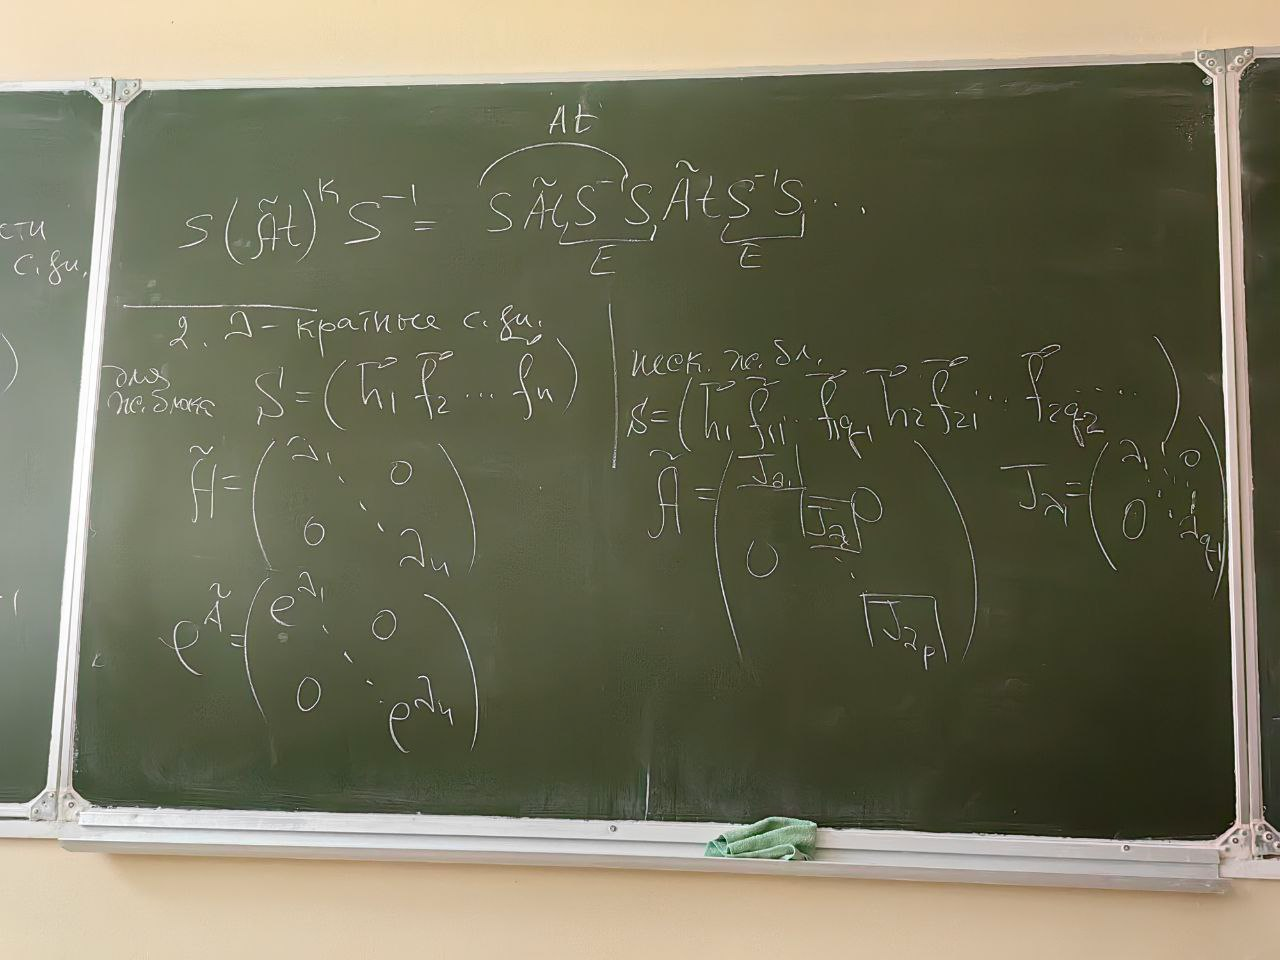 сти
с. зн.
At
S(Ãt)^K S^{-1} = S Ãt S^{-1} S Ãt S^{-1} S ...
E E
2. λ - кратные с. зн.
для
ж. блока S = (h⃗₁ f⃗₂ ... fₙ)
Ã = (λ₁ 0
⋱
0 λₙ)
e^Ã = (e^{λ₁} 0
⋱
0 e^{λₙ})
неск. ж. бл.
S = (h⃗₁ f⃗₁₁ ... f⃗₁q₁ h⃗₂ f⃗₂₁ ... f⃗₂q₂ ...)
Ã = (J_{λ₁}
J_{λ₂} 0
0 ⋱
J_{λp})
J_{λ₁} = (λ₁ 0
⋱
0 λq₁)